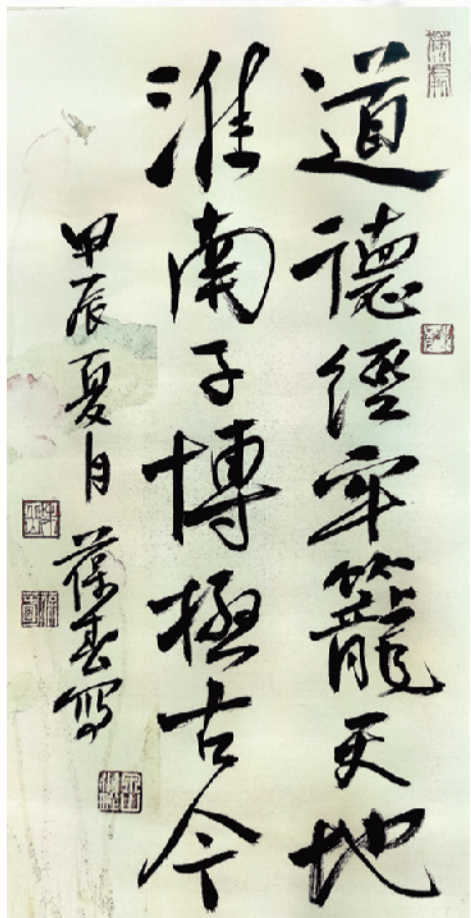 道德經牢籠天地
淮南子博極古今
甲辰夏月葆春寫